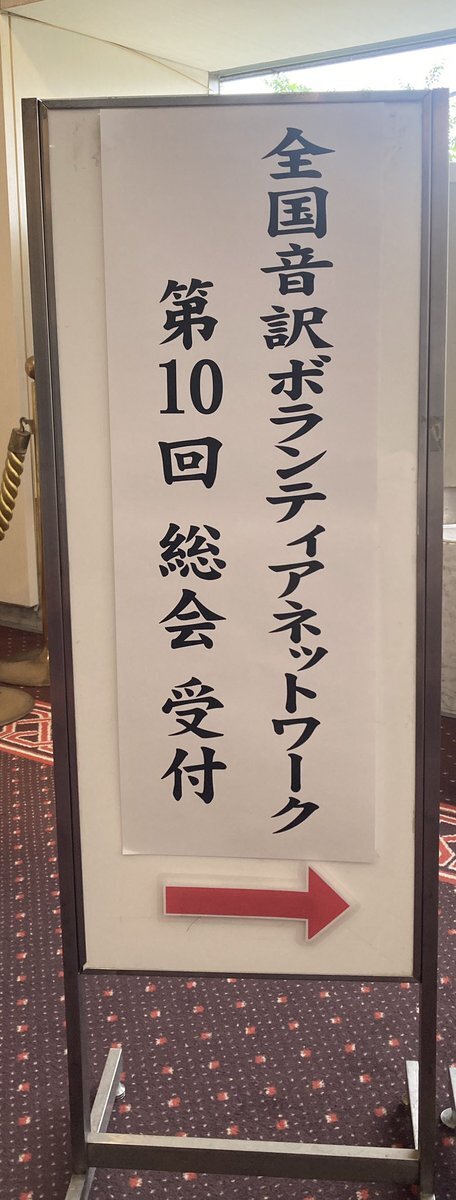 全国音訳ボランティアネットワーク
第10回 総会 受付